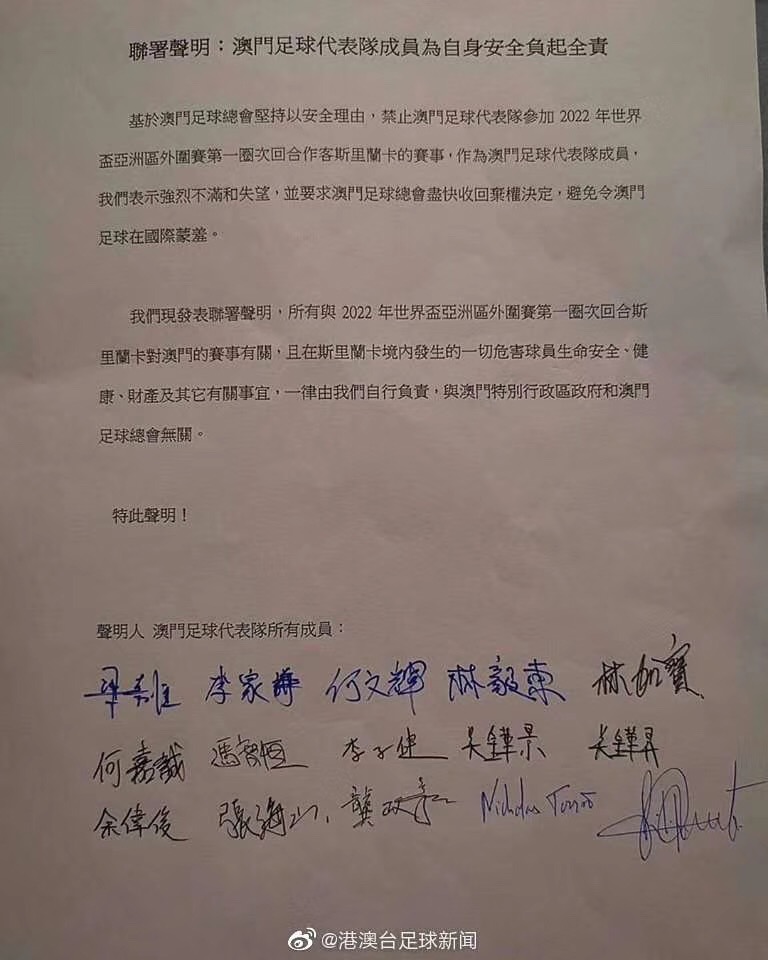 聯署聲明：澳門足球代表隊成員為自身安全負起全責
基於澳門足球總會堅持以安全理由，禁止澳門足球代表隊參加 2022 年世界
盃亞洲區外圍賽第一圈次回合作客斯里蘭卡的賽事，作為澳門足球代表隊成員，
我們表示強烈不滿和失望，並要求澳門足球總會盡快收回棄權決定，避免令澳門
足球在國際蒙羞。
我們現發表聯署聲明，所有與 2022 年世界盃亞洲區外圍賽第一圈次回合斯
里蘭卡對澳門的賽事有關，且在斯里蘭卡境內發生的一切危害球員生命安全、健
康、財產及其它有關事宜，一律由我們自行負責，與澳門特別行政區政府和澳門
足球總會無關。
特此聲明！
聲明人 澳門足球代表隊所有成員：
李家 何文輝 林毅東 林加寶
何嘉誠 馮 李子健 吳鏵景 吳鏵昇
余偉俊 張海山 龔政 Nicholas
@港澳台足球新闻